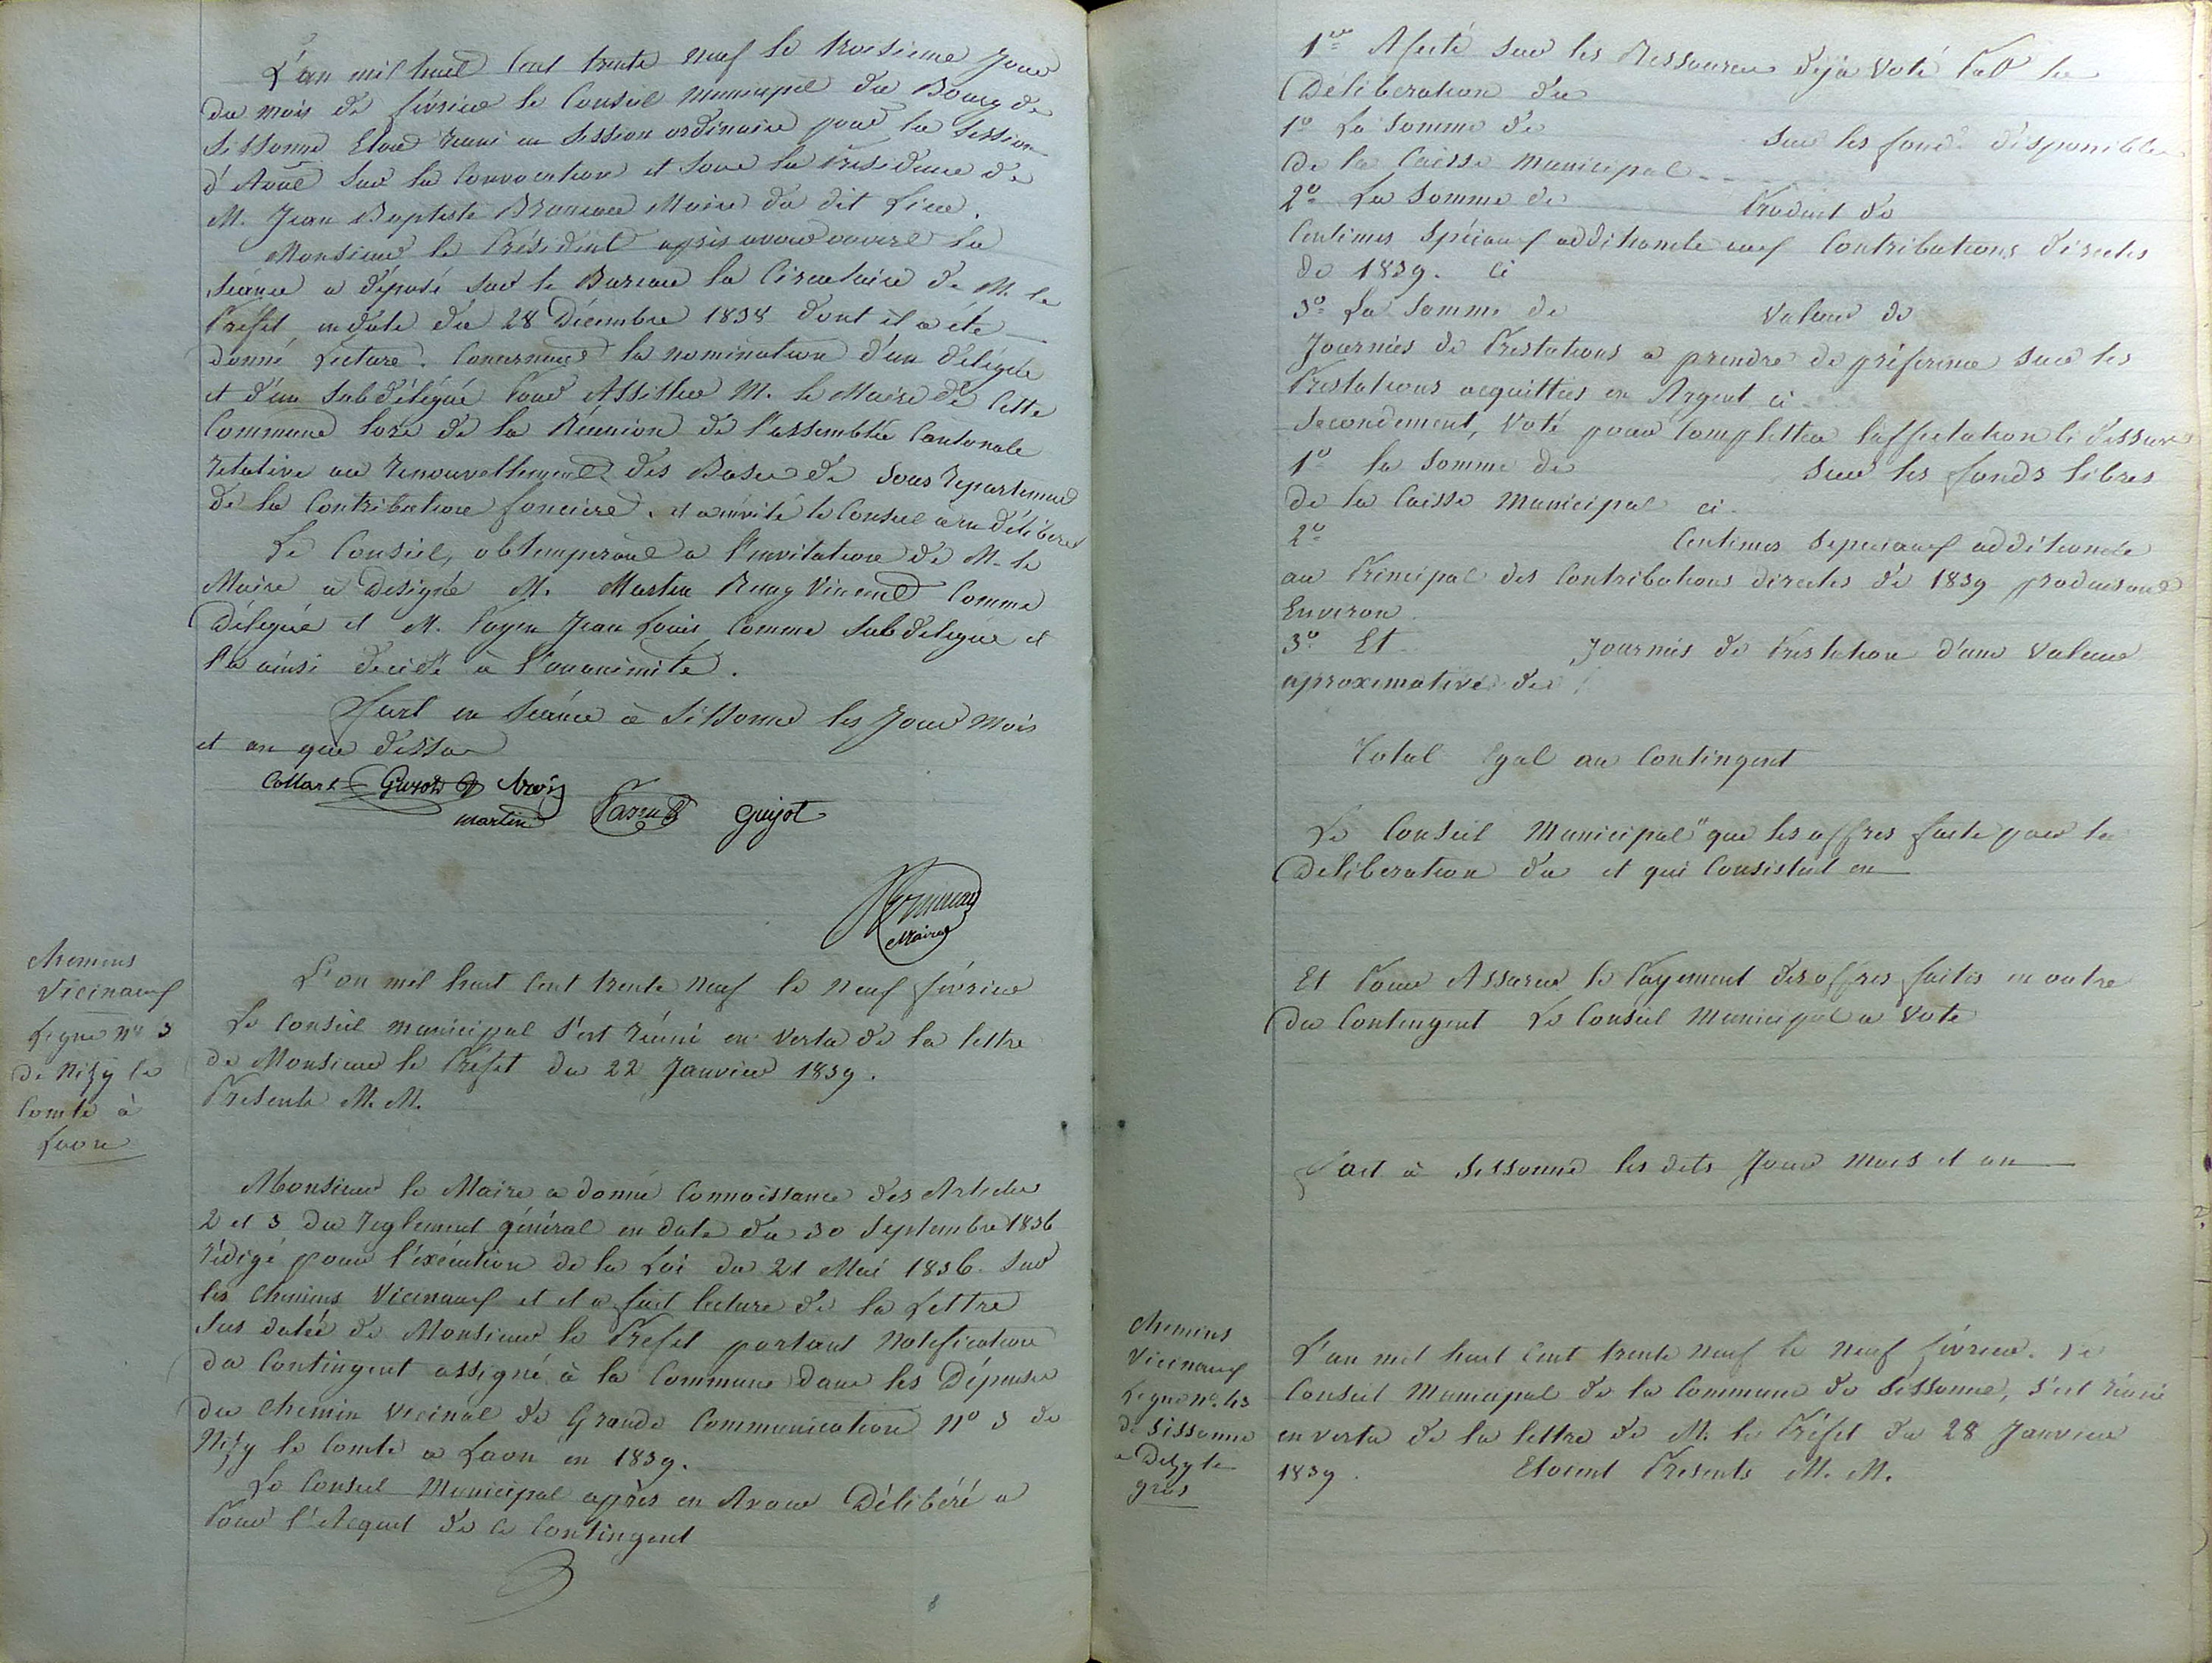 L'an mil huit Cent trente neuf le troisieme Jour
du mois de février le Conseil Municipal du Bourg de
Sissonne Etant reuni en Session ordinaire pour la Session
d'Avril Sur la Convocation et Sous la Présidence de
M. Jean Baptiste Maire du dit Lieu.
Monsieur le Président après avoir ouvert la
Séance a déposé Sur le Bureau la Circulaire de M. le
Préfet en date du 28 Décembre 1838 dont il a été
donné Lecture. Concernant la nomination d'un délégué
et d'un Subdélégué Pour Assister M. le Maire de Cette
Commune lors de la Réunion de l'assemblée Cantonale
relative au renouvellement des Bases de Sous repartement
de la Contribution foncière. et a invité le Conseil à en délibérer
Le Conseil, obtemperant a l'invitation de M. le
Maire a Designé M. Martin Remy Vincent Comme
Délégué et M. Payen Jean Louis Comme Subdélégué et
l'a ainsi decidé à l'unanimité.
Fait en Séance à Sissonne les Jour Mois
et an que dessus
Collart Guyot
martin guyot
Maire
Chemins
Vicinaux
Ligne No 3
de Nizy le
Comte à
Laon
L'an mil huit Cent trente Neuf le Neuf février
Le Conseil municipal S'est réuni en Vertu de la lettre
de Monsieur le Préfet du 22 Janvier 1839.
Presents M. M.
Monsieur le Maire a donné Connoissance des Articles
2 et 3 du reglement général en date du 30 Septembre 1836
rédigé pour l'éxécution de la Loi du 21 Mai 1836. Sur
les Chemins Vicinaux et il a fait lecture de la Lettre
Sus datée de Monsieur le Prefet portant Notification
du Contingent assigné à la Commune dans les Dépenses
du Chemin Vicinal de Grande Communication No 3 de
Nizy le Comte a Laon en 1839.
Le Conseil Municipal après en Avoir Délibéré a
Pour l'Acquit de Ce Contingent
1er Afecté Sur les Ressources déja Voté Par la
Déliberation du
1o La Somme de Sur les fonds disponibles
de la Caisse Municipal
2o La Somme de Produit de
Centimes Spéciaux additionels aux Contributions directes
de 1839. Ci
3o La Somme de Valeur de
Journées de Prestations a prendre de préference Sur les
Prestations acquittées en Argent ci
Secondement, Voté pour Completter l'affectation Ci dessus
1o la Somme de Sur les fonds libres
de la Caisse Municipal ci
2o Centimes Speciaux additionels
au Principal des Contributions directes de 1839 produisant
Environ
3o Et Journées de Prestation d'une Valeur
aproximative de
Total Egal au Contingent
Le Conseil Municipal " que les offres faite par la
Deliberation du et qui Consistent en
Et Pour Assurer le Payement des offres faites en outre
du Contingent Le Conseil Municipal a Voté
Fait à Sissonne les dits Jour Mois et an
Chemins
Vicinaux
Ligne No. 43
de Sissonne
a Dizy le
gros
L'an mil huit Cent trente Neuf le Neuf février. Le
Conseil Municipal de la Commune de Sissonne, S'est réuni
en vertu de la lettre de M. le Préfet du 28 Janvier
1839. Etoient Presents M. M.